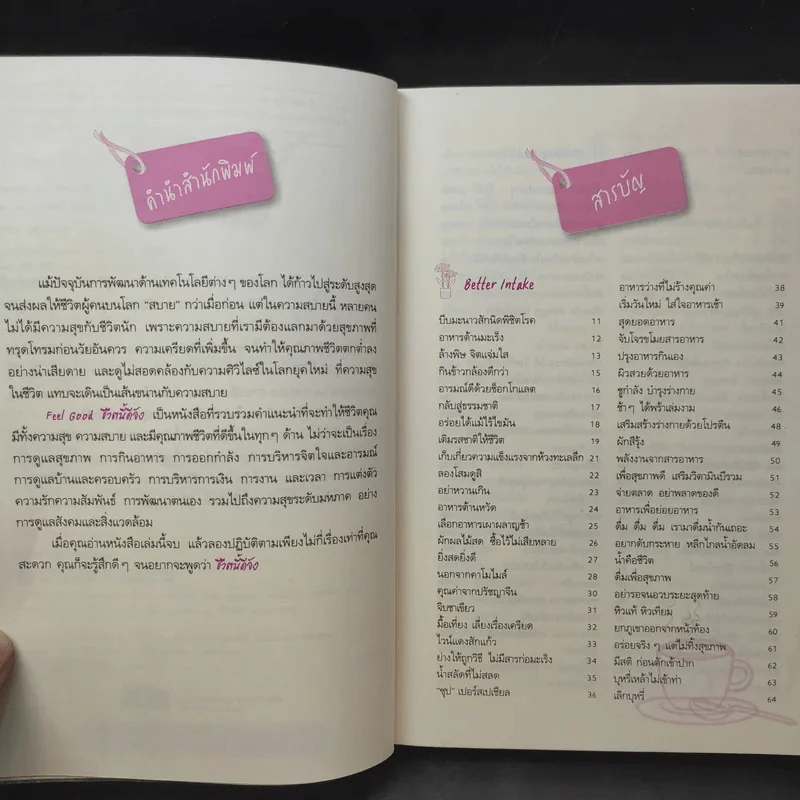 คำนำสำนักพิมพ์
แม้ปัจจุบันการพัฒนาด้านเทคโนโลยีต่างๆ ของโลก ได้ก้าวไปสู่ระดับสูงสุด
จนส่งผลให้ชีวิตผู้คนบนโลก “สบาย” กว่าเมื่อก่อน แต่ในความสบายนี้ หลายคน
ไม่ได้มีความสุขกับชีวิตนัก เพราะความสบายที่เรามีต้องแลกมาด้วยสุขภาพที่
ทรุดโทรมก่อนวัยอันควร ความเครียดที่เพิ่มขึ้น จนทำให้คุณภาพชีวิตตกต่ำลง
อย่างน่าเสียดาย และดูไม่สอดคล้องกับความศิวิไลซ์ในโลกยุคใหม่ ที่ความสุข
ในชีวิต แทบจะเดินเป็นเส้นขนานกับความสบาย
Feel Good ชีวิตนี้ดีจัง เป็นหนังสือที่รวบรวมคำแนะนำที่จะทำให้ชีวิตคุณ
มีทั้งความสุข ความสบาย และมีคุณภาพชีวิตที่ดีขึ้นในทุกๆ ด้าน ไม่ว่าจะเป็นเรื่อง
การดูแลสุขภาพ การกินอาหาร การออกกำลัง การบริหารจิตใจและอารมณ์
การดูแลบ้านและครอบครัว การบริหารการเงิน การงาน และเวลา การแต่งตัว
ความรักความสัมพันธ์ การพัฒนาตนเอง รวมไปถึงความสุขระดับมหภาค อย่าง
การดูแลสังคมและสิ่งแวดล้อม
เมื่อคุณอ่านหนังสือเล่มนี้จบ แล้วลองปฏิบัติตามเพียงไม่กี่เรื่องเท่าที่คุณ
สะดวก คุณก็จะรู้สึกดีๆ จนอยากจะพูดว่า ชีวิตนี้ดีจัง
สารบัญ
Better Intake
บีบมะนาวสักนิดพิชิตโรค 11
อาหารต้านมะเร็ง 13
ล้างพิษ จิตแจ่มใส 14
กินข้าวกล้องดีกว่า 15
อารมณ์ดีด้วยช็อกโกแลต 16
กลับสู่ธรรมชาติ 17
อร่อยได้แม้ไร้ไขมัน 18
เติมรสชาติให้ชีวิต 19
เก็บเกี่ยวความแข็งแรงจากห้วงทะเลลึก 21
ลองโสมดูสิ 22
อย่าหวานเกิน 23
อาหารต้านหวัด 24
เลือกอาหารเผาผลาญซ้ำ 25
ผักผลไม้สด ซื้อไว้ไม่เสียหลาย 26
ยิ่งสดยิ่งดี 27
นอกจากคาโมไมล์ 28
คุณค่าจากปรัชญาจีน 30
จิบชาเขียว 31
มื้อเที่ยง เลี่ยงเรื่องเครียด 32
ไวน์แดงสักแก้ว 33
ย่างให้ถูกวิธี ไม่มีสารก่อมะเร็ง 34
น้ำสลัดที่ไม่สลด 35
“ซุป” เปอร์สเปเชียล 36
อาหารว่างที่ไม่ร้างคุณค่า 38
เริ่มวันใหม่ ใส่ใจอาหารเช้า 39
สุดยอดอาหาร 41
จับโจรขโมยสารอาหาร 42
ปรุงอาหารกินเอง 43
ผิวสวยด้วยอาหาร 44
ชูกำลัง บำรุงร่างกาย 45
ช้าๆ ได้พร้าเล่มงาม 46
เสริมสร้างร่างกายด้วยโปรตีน 48
ผักสีรุ้ง 49
พลังงานจากสารอาหาร 50
เพื่อสุขภาพดี เสริมวิตามินบีรวม 51
จ่ายตลาด อย่าพลาดของดี 52
อาหารเพื่อย่อยอาหาร 53
ดื่ม ดื่ม ดื่ม เรามาดื่มน้ำกันเถอะ 54
อยากดับกระหาย หลีกไกลน้ำอัดลม 55
น้ำคือชีวิต 56
ดื่มเพื่อสุขภาพ 57
อย่ารอจนอวบระยะสุดท้าย 58
หิวแท้ หิวเทียม 59
ยกภูเขาออกจากหน้าท้อง 60
อร่อยจริงๆ แต่ไม่ทิ้งสุขภาพ 61
มีสติ ก่อนตักเข้าปาก 62
บุหรี่เหล้าไม่เข้าท่า 63
เลิกบุหรี่ 64